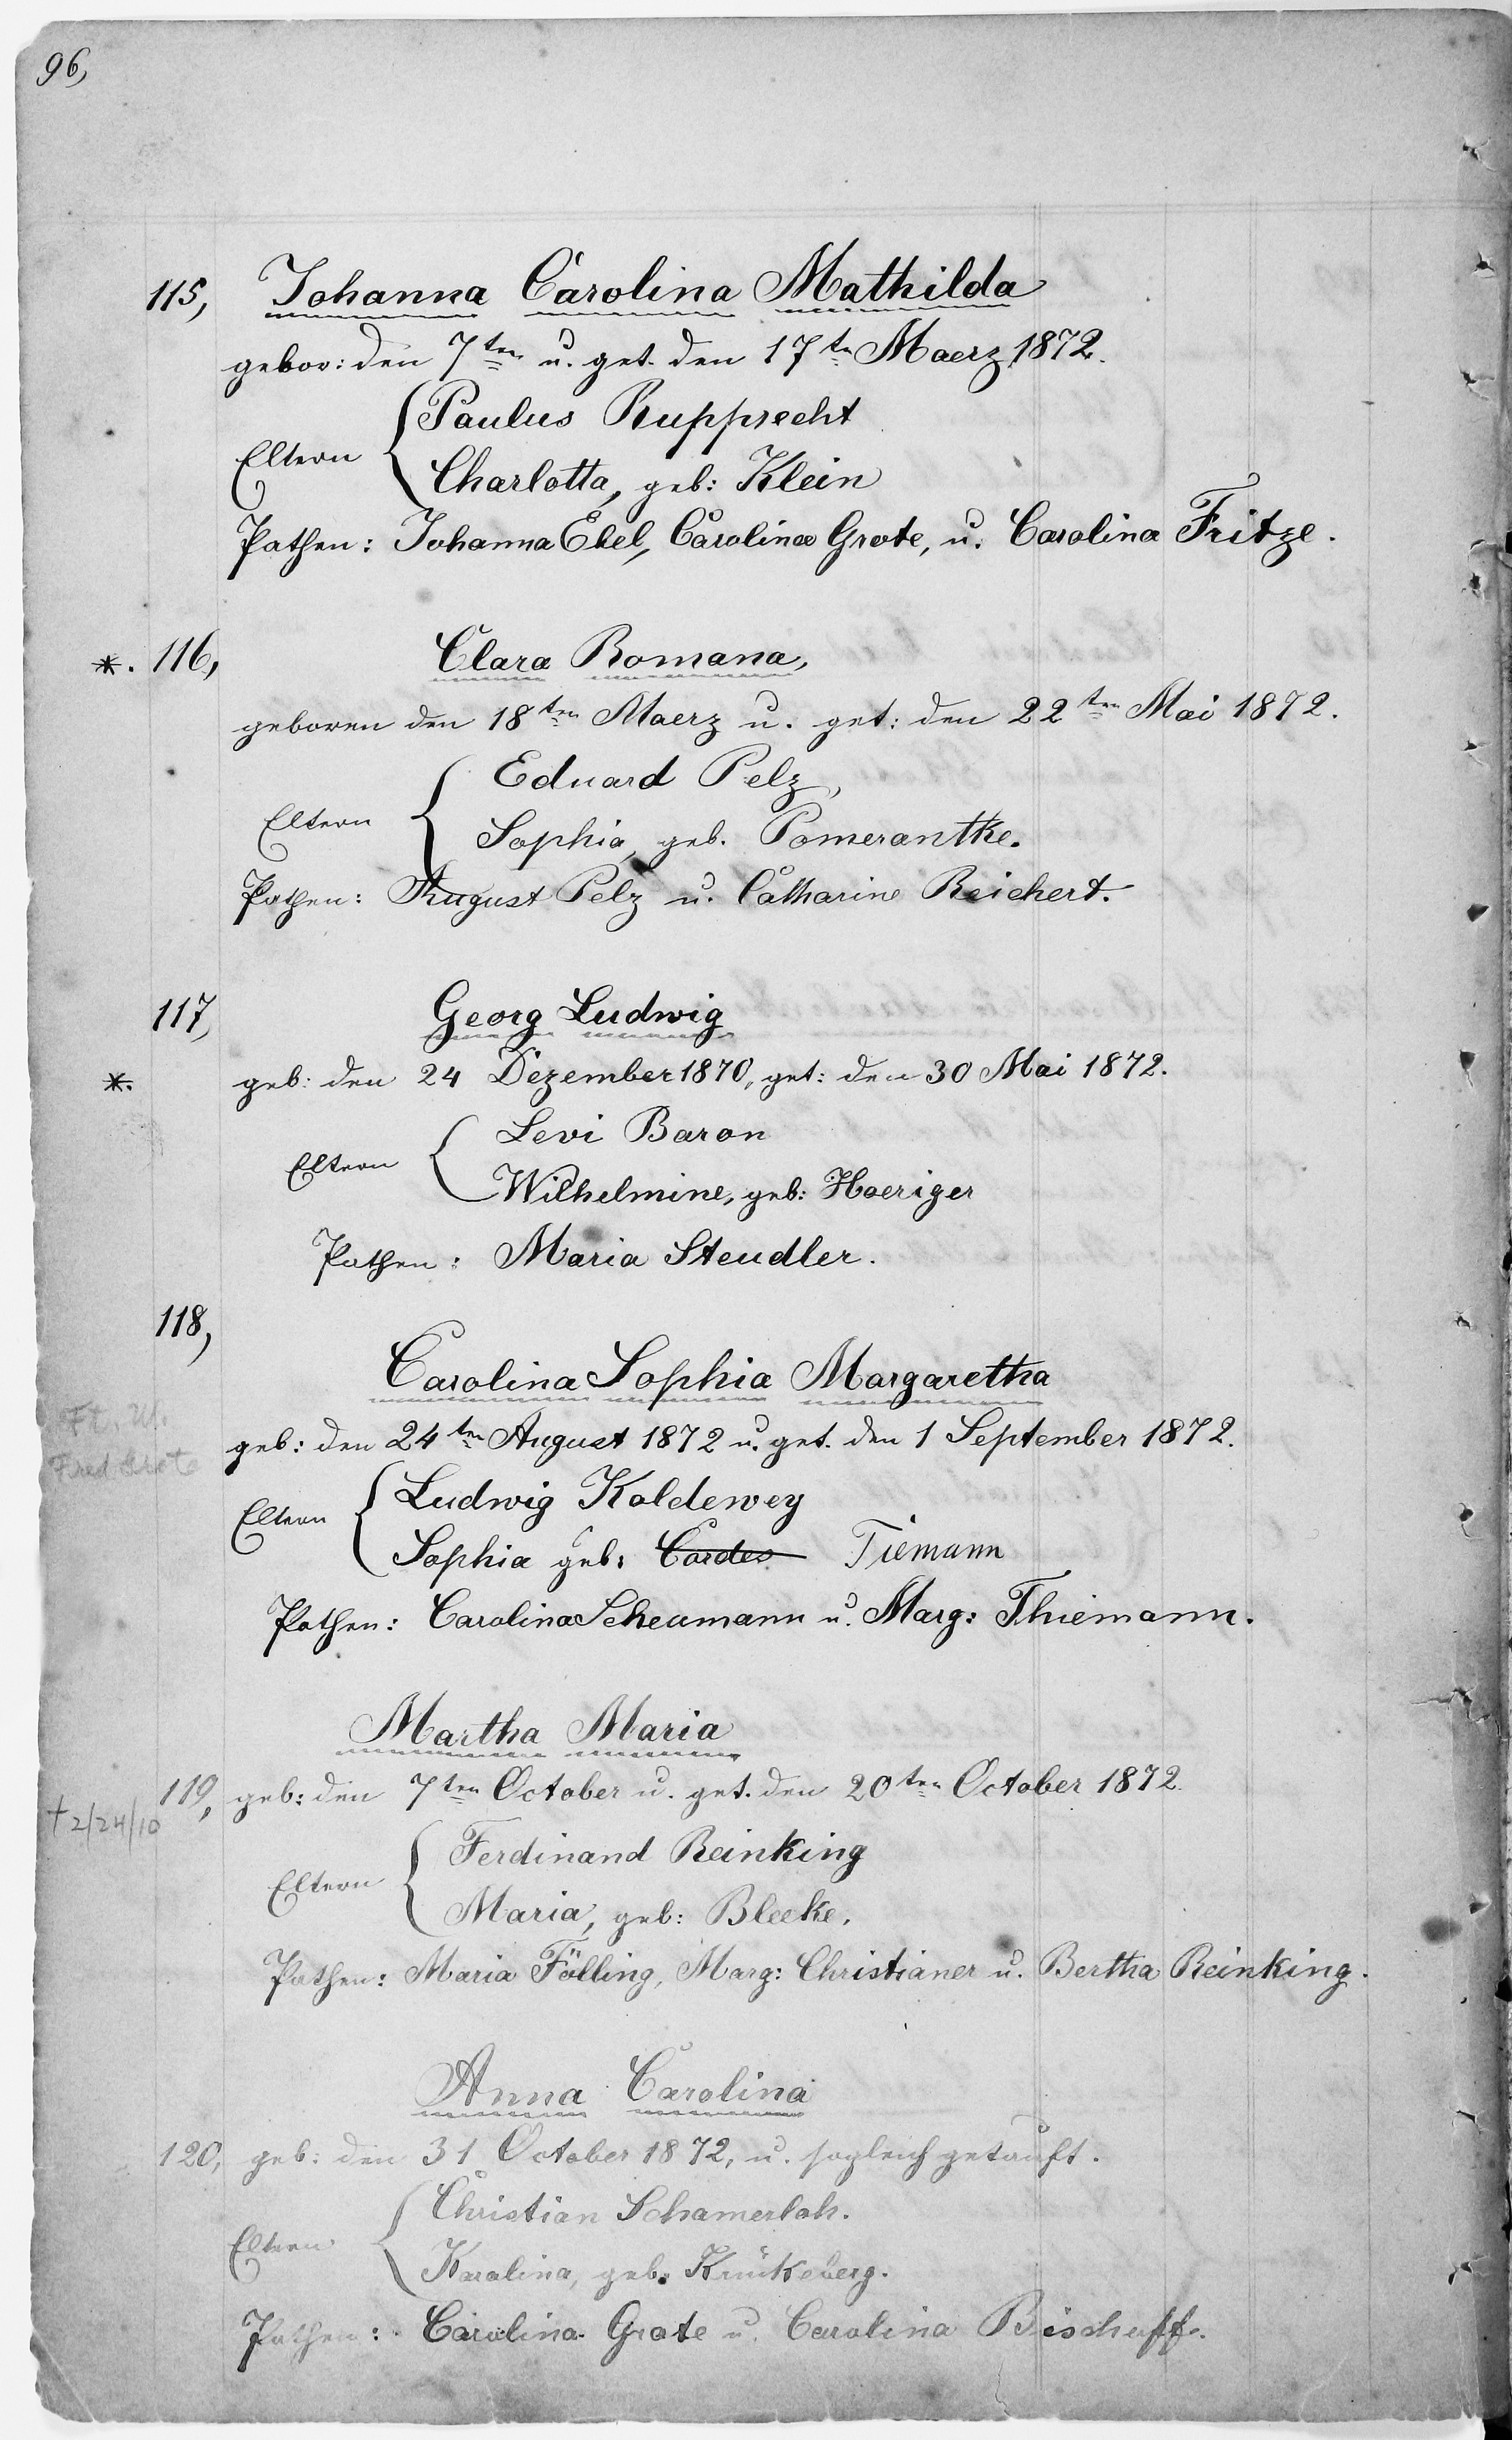 96,
115, Johanna Carolina Mathilda
gebor: den 7ten u. get. den 17tn Maerz 1872.
Paulus Rupprecht
Eltern
Charlotta, geb: Klein
Pathen: Johanna Ebel, Carolina Grote, u. Carolina Fritze.
*. 116, Clara Romana,
geboren den 18ten Maerz u. get: den 22ten Mai 1872.
Eduard Pelz,
Eltern
Sophia, geb. Pomerantke.
Pathen: August Pelz u. Catharine Reichert.
117, Georg Ludwig
*. geb: den 24 Dezember 1870, get: den 30 Mai 1872.
Levi Baron
Eltern
Wilhelmine, geb: Haeriger
Pathen: Maria Steudler.
118,
Carolina Sophia Margaretha
Ft. W.
geb: den 24ten August 1872 u. get. den 1 September 1872.
Fred Grote
Ludwig Koldewey
Eltern
Sophia geb: Cordes Tiemann
Pathen: Carolina Scheumann u. Marg: Thiemann.
Martha Maria
119, geb: den 7ten October u. get. den 20ten October 1872.
+2/24/10
Ferdinand Reinking
Eltern
Maria, geb: Bleeke.
Pathen: Maria Fölling, Marg: Christianer u. Bertha Reinking.
Anna Carolina
120, geb: den 31 October 1872, u. sogleich getauft.
Christian Schamerloh.
Eltern
Karolina, geb. Krückeberg.
Pathen: Carolina Grote u. Carolina Bischoff.